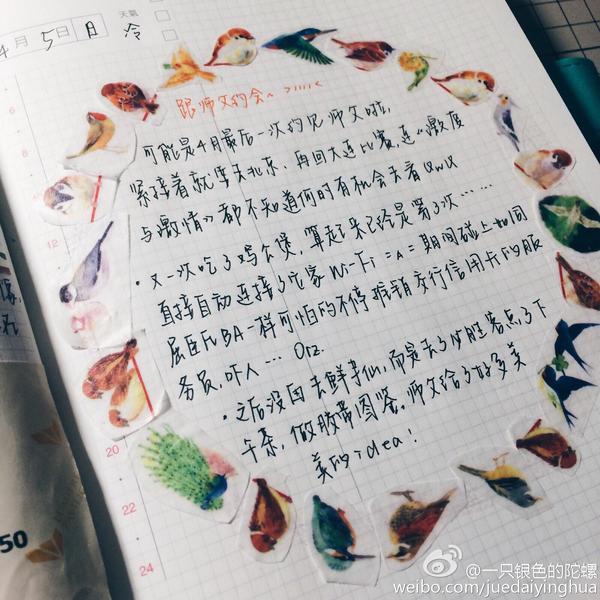 4月5日 日
天氣
冷
跟师父约会~ >/////<
可能是4月最后一次约见师父啦,
紧接着就要去北京、再回大连比赛,连《激战
与激情》都不知道何时有机会去看QwQ
·又一次吃了鸡公煲,算起来已经是第3次……
直接自动连接了它家Wi-Fi =A= 期间碰上如同
屈臣氏BA一样可怕的不停推销交行信用卡的服
务员,吓人… Orz.
·之后没回去鲜芋仙,而是去了必胜客点了下
午茶,做胶带图鉴。师父给了好多美
美的idea!
6
8
12
20
22
24
50
@一只银色的陀螺
weibo.com/juedaiyinghua